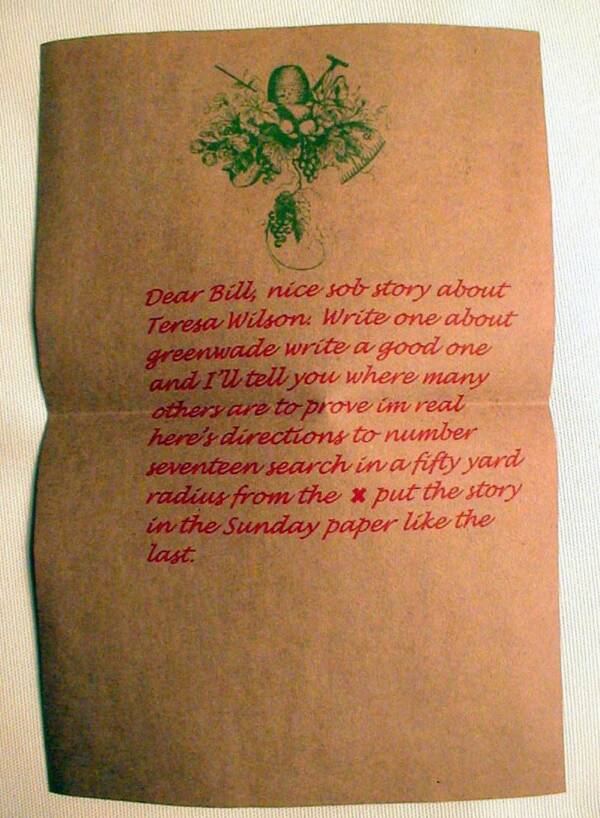 Dear Bill, nice sob story about
Teresa Wilson. Write one about
greenwade write a good one
and I'll tell you where many
others are to prove im real
here's directions to number
seventeen search in a fifty yard
radius from the ✖ put the story
in the Sunday paper like the
last.